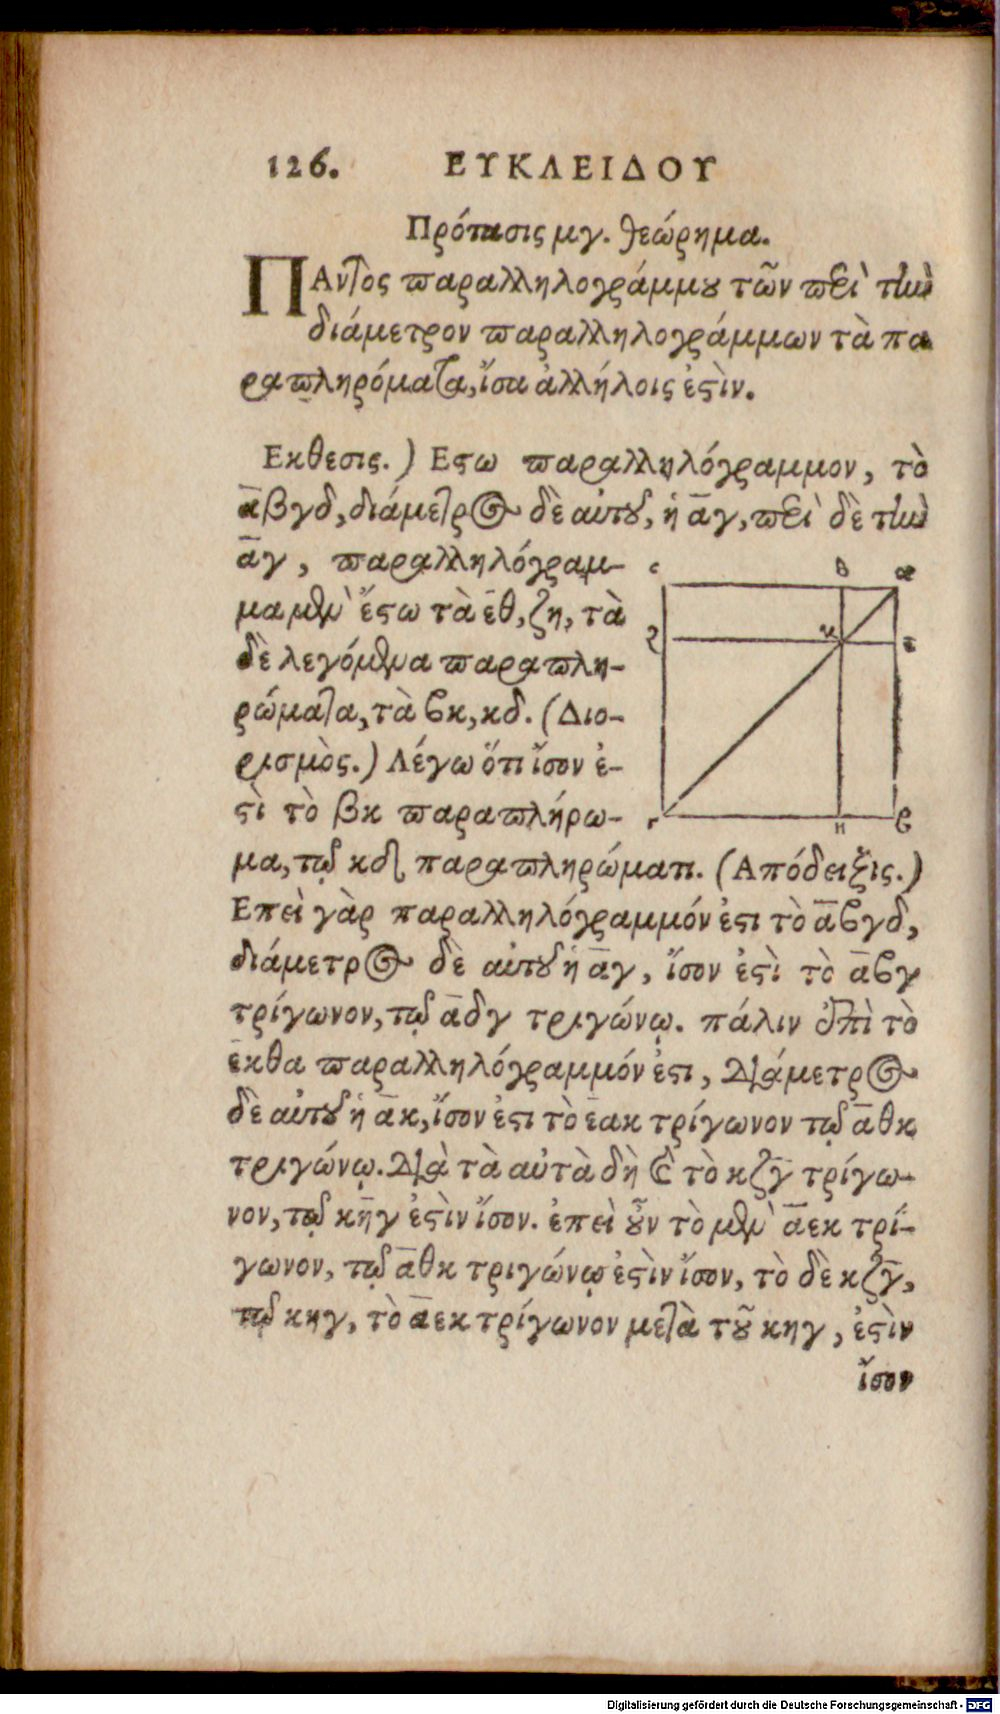 126. ΕΥΚΛΕΙΔΟΥ
Πρότασις μγ. θεώρημα.
ΠΑντὸς παραλληλογράμμου τῶν περὶ τὴν
διάμετρον παραλληλογράμμων τὰ πα
ραπληρόματα, ἴσα ἀλλήλοις ἐστὶν.
Εκθεσις.) Εστω παραλληλόγραμμον, τὸ
α̅βγδ, διάμετρος δὲ αὐτοῦ, ἡ α̅γ, περὶ δὲ τὴν
α̅γ, παραλληλόγραμ-
μα μὲν ἔστω τὰ ε̅θ, ζη, τὰ
δὲ λεγόμενα παραπλη-
ρώματα, τὰ βκ, κδ. (Διο-
ρισμὸς.) Λέγω ὅτι ἴσον ἐ-
στὶ τὸ βκ παραπλήρω-
μα, τῷ κδ παραπληρώματι. (Απόδειξις.)
Επεὶ γὰρ παραλληλόγραμμόν ἐστι τὸ α̅βγδ,
διάμετρος δὲ αὐτοῦ ἡ α̅γ, ἴσον ἐστὶ τὸ α̅βγ
τρίγωνον, τῷ α̅δγ τριγώνῳ. πάλιν ἐπὶ τὸ
ε̅κθα παραλληλόγραμμόν ἐστι, διάμετρος
δὲ αὐτοῦ ἡ α̅κ, ἴσον ἐστι τὸ ε̅ακ τρίγωνον τῷ α̅θκ
τριγώνῳ. Διὰ τὰ αὐτὰ δὴ καὶ τὸ κζγ̅ τρίγω-
νον, τῷ κη̅γ ἐστὶν ἴσον. ἐπεὶ οὖν τὸ μὲν α̅εκ τρί-
γωνον, τῷ α̅θκ τριγώνῳ ἐστὶν ἴσον, τὸ δὲ κζγ̅,
τῷ κηγ, τὸ α̅εκ τρίγωνον μετὰ τοῦ κηγ, ἐστὶν
ἴσον
δ θ α
ζ κ ε
γ η β
Digitalisierung gefördert durch die Deutsche Forschungsgemeinschaft - DFG